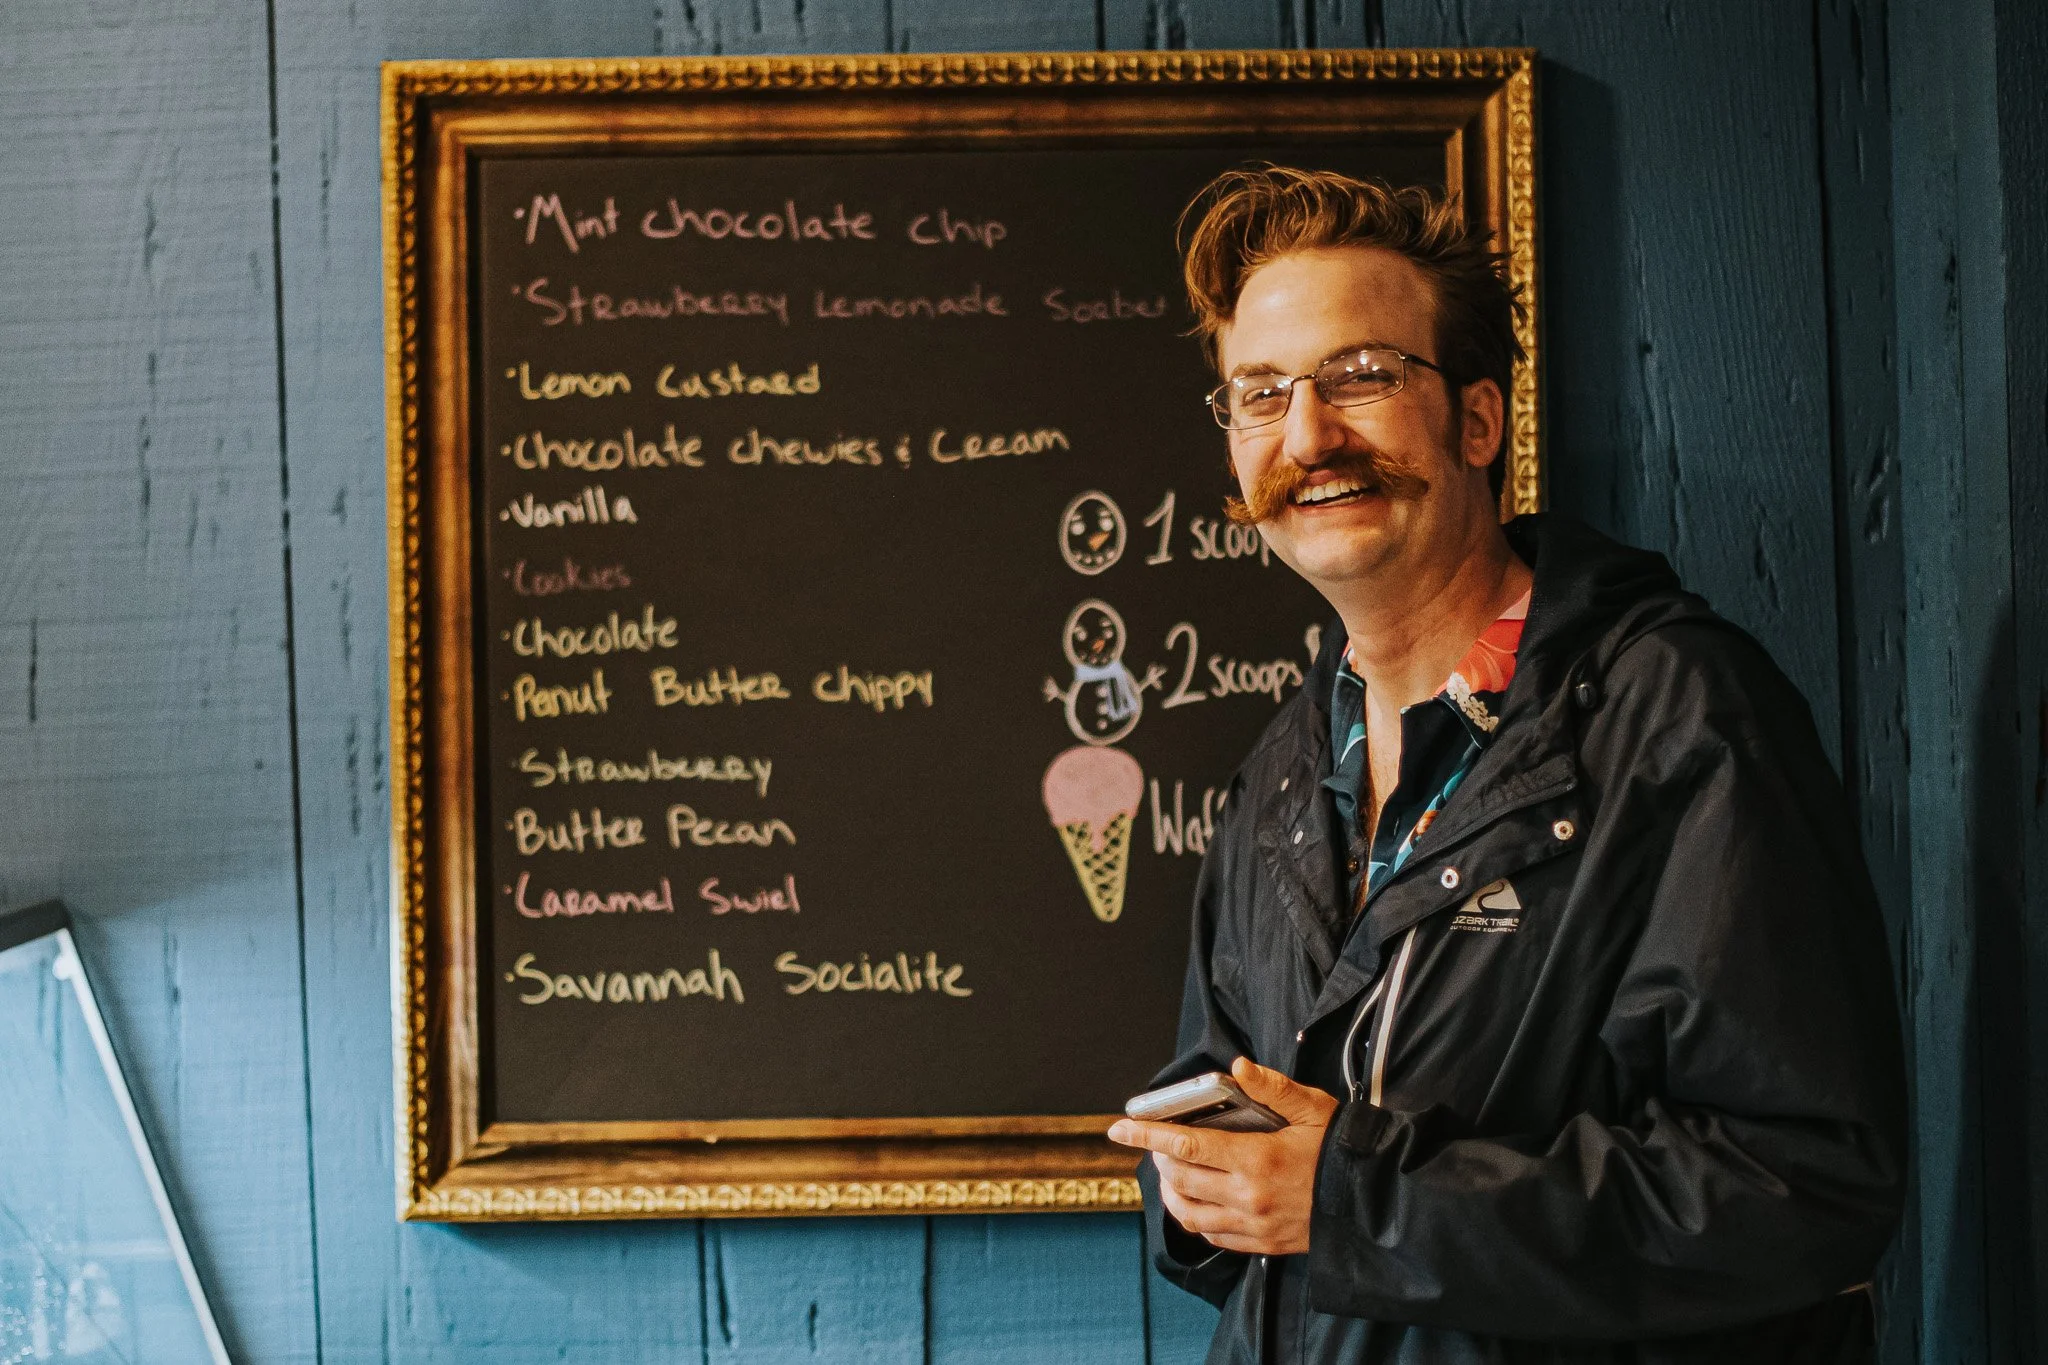 ·Mint chocolate chip
·Strawberry Lemonade Sorbet
·Lemon Custard
·Chocolate chewies & Cream
·Vanilla
·Cookies
·Chocolate
·Peanut Butter chippy
·Strawberry
·Butter Pecan
·Caramel Swirl
·Savannah Socialite
1 scoop
2 scoops
Waff
OZARK TRAIL
OUTDOOR EQUIPMENT